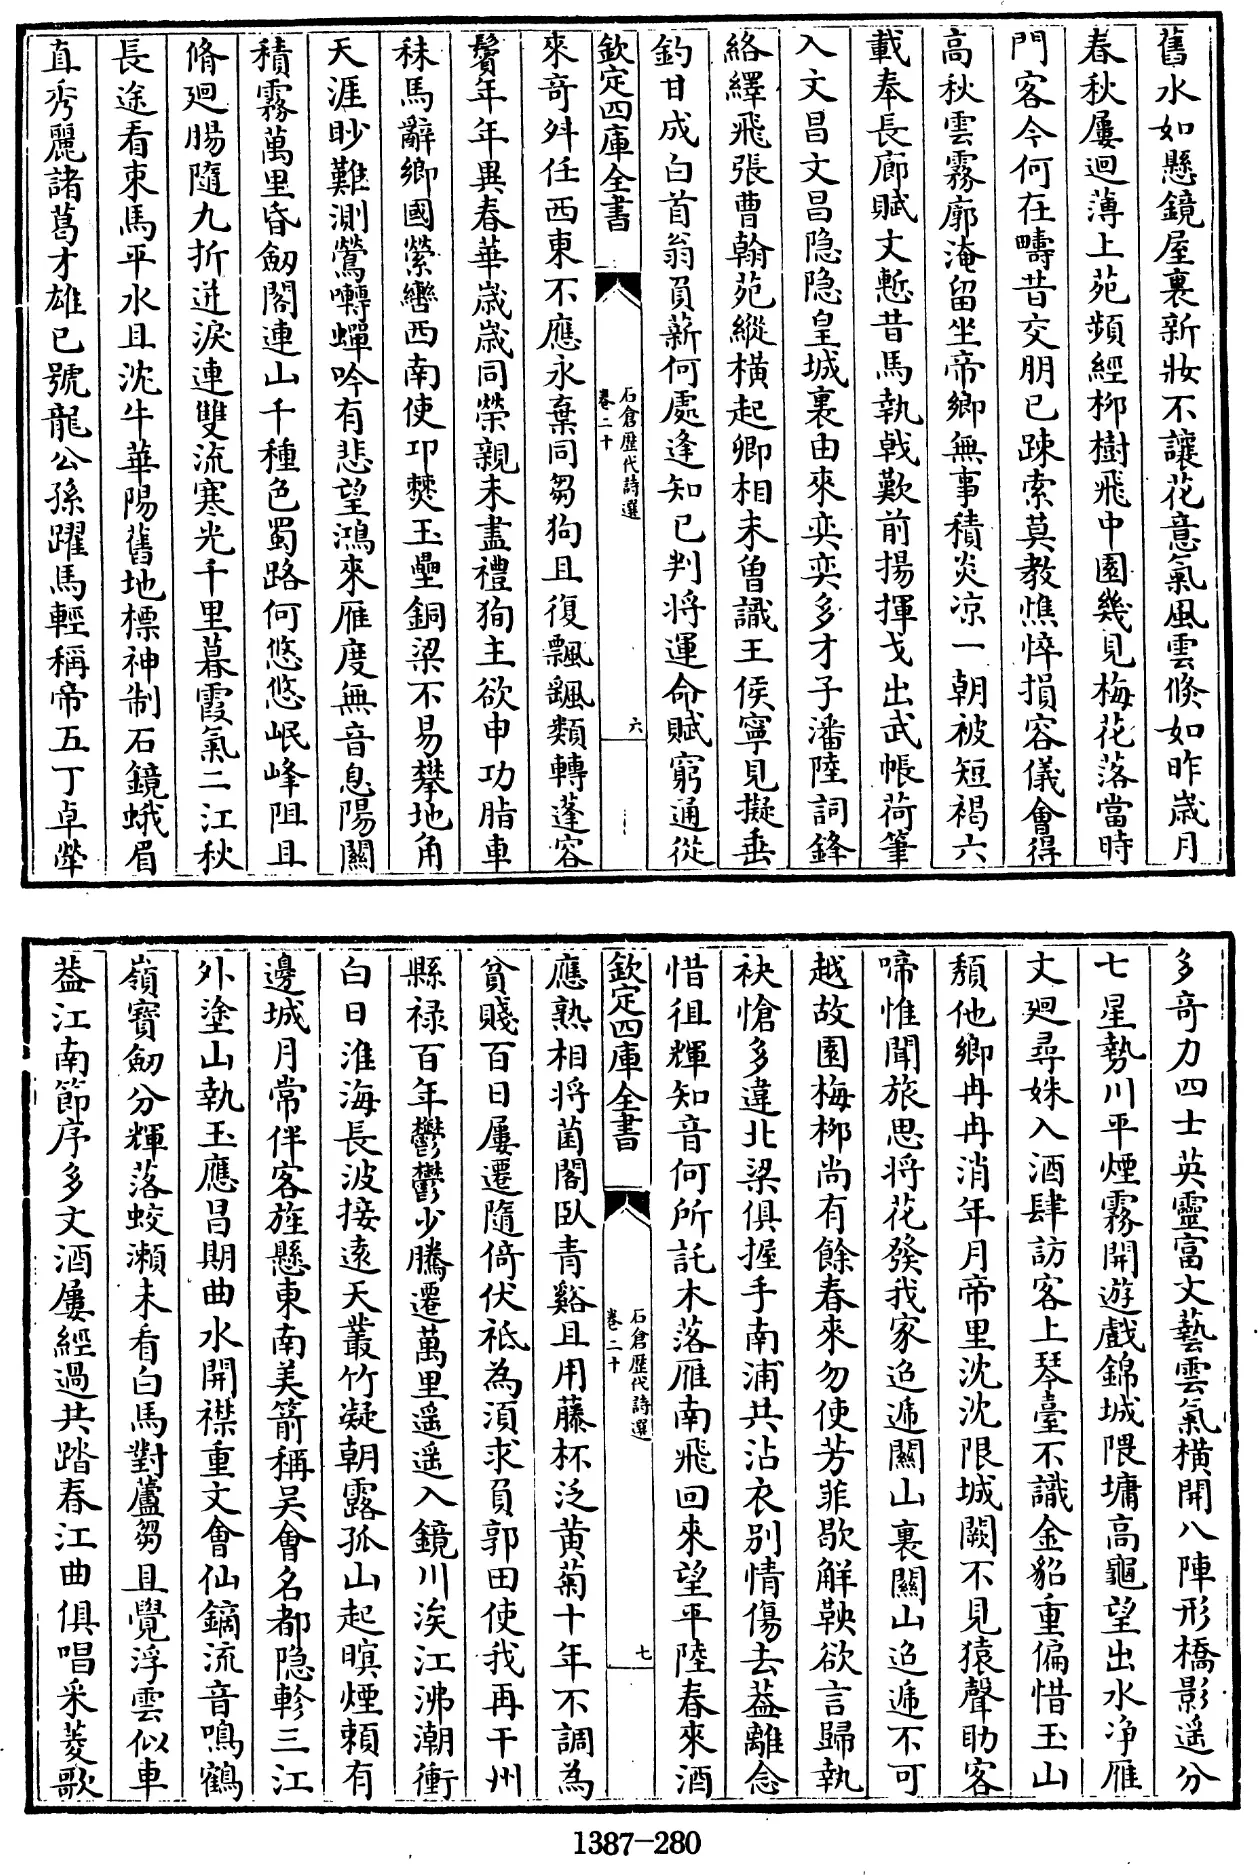 舊水如懸鏡屋裏新妝不讓花意氣風雲倏如昨歲月
春秋屢迴薄上苑頻經柳樹飛中園幾見梅花落當時
門客今何在疇昔交朋已疎索莫教憔悴損容儀會得
高秋雲霧廓淹留坐帝鄉無事積炎凉一朝被短褐六
載奉長廊賦文慙昔馬執戟歎前揚揮戈出武帳荷筆
入文昌文昌隐隐皇城裏由來奕奕多才子潘陸詞鋒
絡繹飛張曹翰苑縱横起卿相未曾識王侯寧見擬垂
釣甘成白首翁負薪何處逢知已判將運命賦窮通從
欽定四庫全書
石倉歷代詩選
卷二十
六
來奇舛任西東不應永棄同芻狗且復飄飖類轉蓬容
鬢年年異春華歲歲同榮親未盡禮狥主欲申功脂車
秣馬辭鄉國縈轡西南使卭僰玉壘銅梁不易攀地角
天涯眇難測鶯囀蟬吟有悲望鴻來雁度無音息陽關
積霧萬里昏劒閣連山千種色蜀路何悠悠岷峰阻且
脩廻腸隨九折迸淚連雙流寒光千里暮霞氣二江秋
長途看束馬平水且沈牛華陽舊地標神制石鏡蛾眉
直秀麗諸葛才雄已號龍公孫躍馬輕稱帝五丁卓犖
多奇力四士英靈富文藝雲氣横開八陣形橋影遥分
七星勢川平煙霧開遊戲錦城隈墉高龜望出水净雁
文廻尋姝入酒肆訪客上琴臺不識金貂重偏惜玉山
頽他鄉冉冉消年月帝里沈沈限城闕不見猿聲助客
啼惟聞旅思將花發我家迢逓關山裏關山迢逓不可
越故園梅柳尚有餘春來勿使芳菲歇解鞅欲言歸執
袂愴多違北梁俱握手南浦共沾衣别情傷去葢離念
惜徂輝知音何所託木落雁南飛回來望平陸春來酒
欽定四庫全書
石倉歷代詩選
卷二十
七
應熟相將菌閣臥青谿且用藤杯泛黄菊十年不調為
貧賤百日屢遷隨倚伏祗為湏求負郭田使我再干州
縣禄百年鬱鬱少騰遷萬里遥遥入鏡川涘江沸潮衝
白日淮海長波接遠天叢竹凝朝露孤山起暝煙頼有
邊城月常伴客旌懸東南美箭稱吴會名都隐軫三江
外塗山執玉應昌期曲水開襟重文會仙鏑流音鳴鶴
嶺寶劒分輝落蛟瀬未看白馬對蘆芻且覺浮雲似車
葢江南節序多文酒屢經過共踏春江曲俱唱采菱歌
1387-280